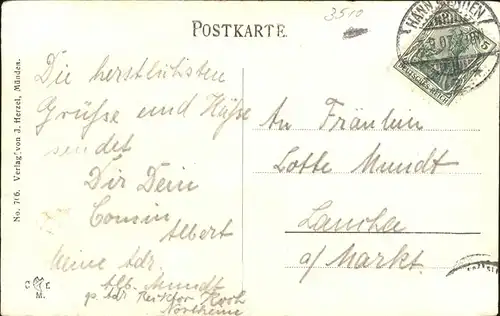 3510
POSTKARTE.
HANN. MÜNDEN
DEUTSCHES REICH
No. 716. Verlag von J. Herzel, Münden.
Die herzlichsten
Grüße und Küsse
sendet
Dir Dein
Cousin
Albert
Meine Adr.
Alb. Mundt
p. Adr. Rektor Koch
Northeim
An Fräulein
Lotte Mundt
Laucha
a/ Markt.
M.